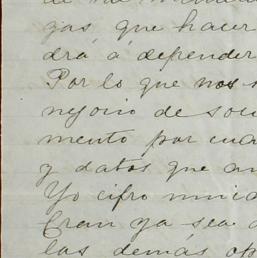 gas que hacer
drá á defender
Por lo que nos
negocio de
mento por
y datos que
Yo cifro
Gran ya sea
las demás